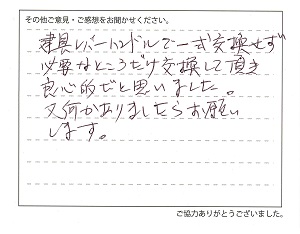 その他ご意見・ご感想をお聞かせください。
建具レバーハンドルで一式交換せず
必要なところだけ交換して頂き
良心的だと思いました。
又何かありましたらお願い
します。
ご協力ありがとうございました。